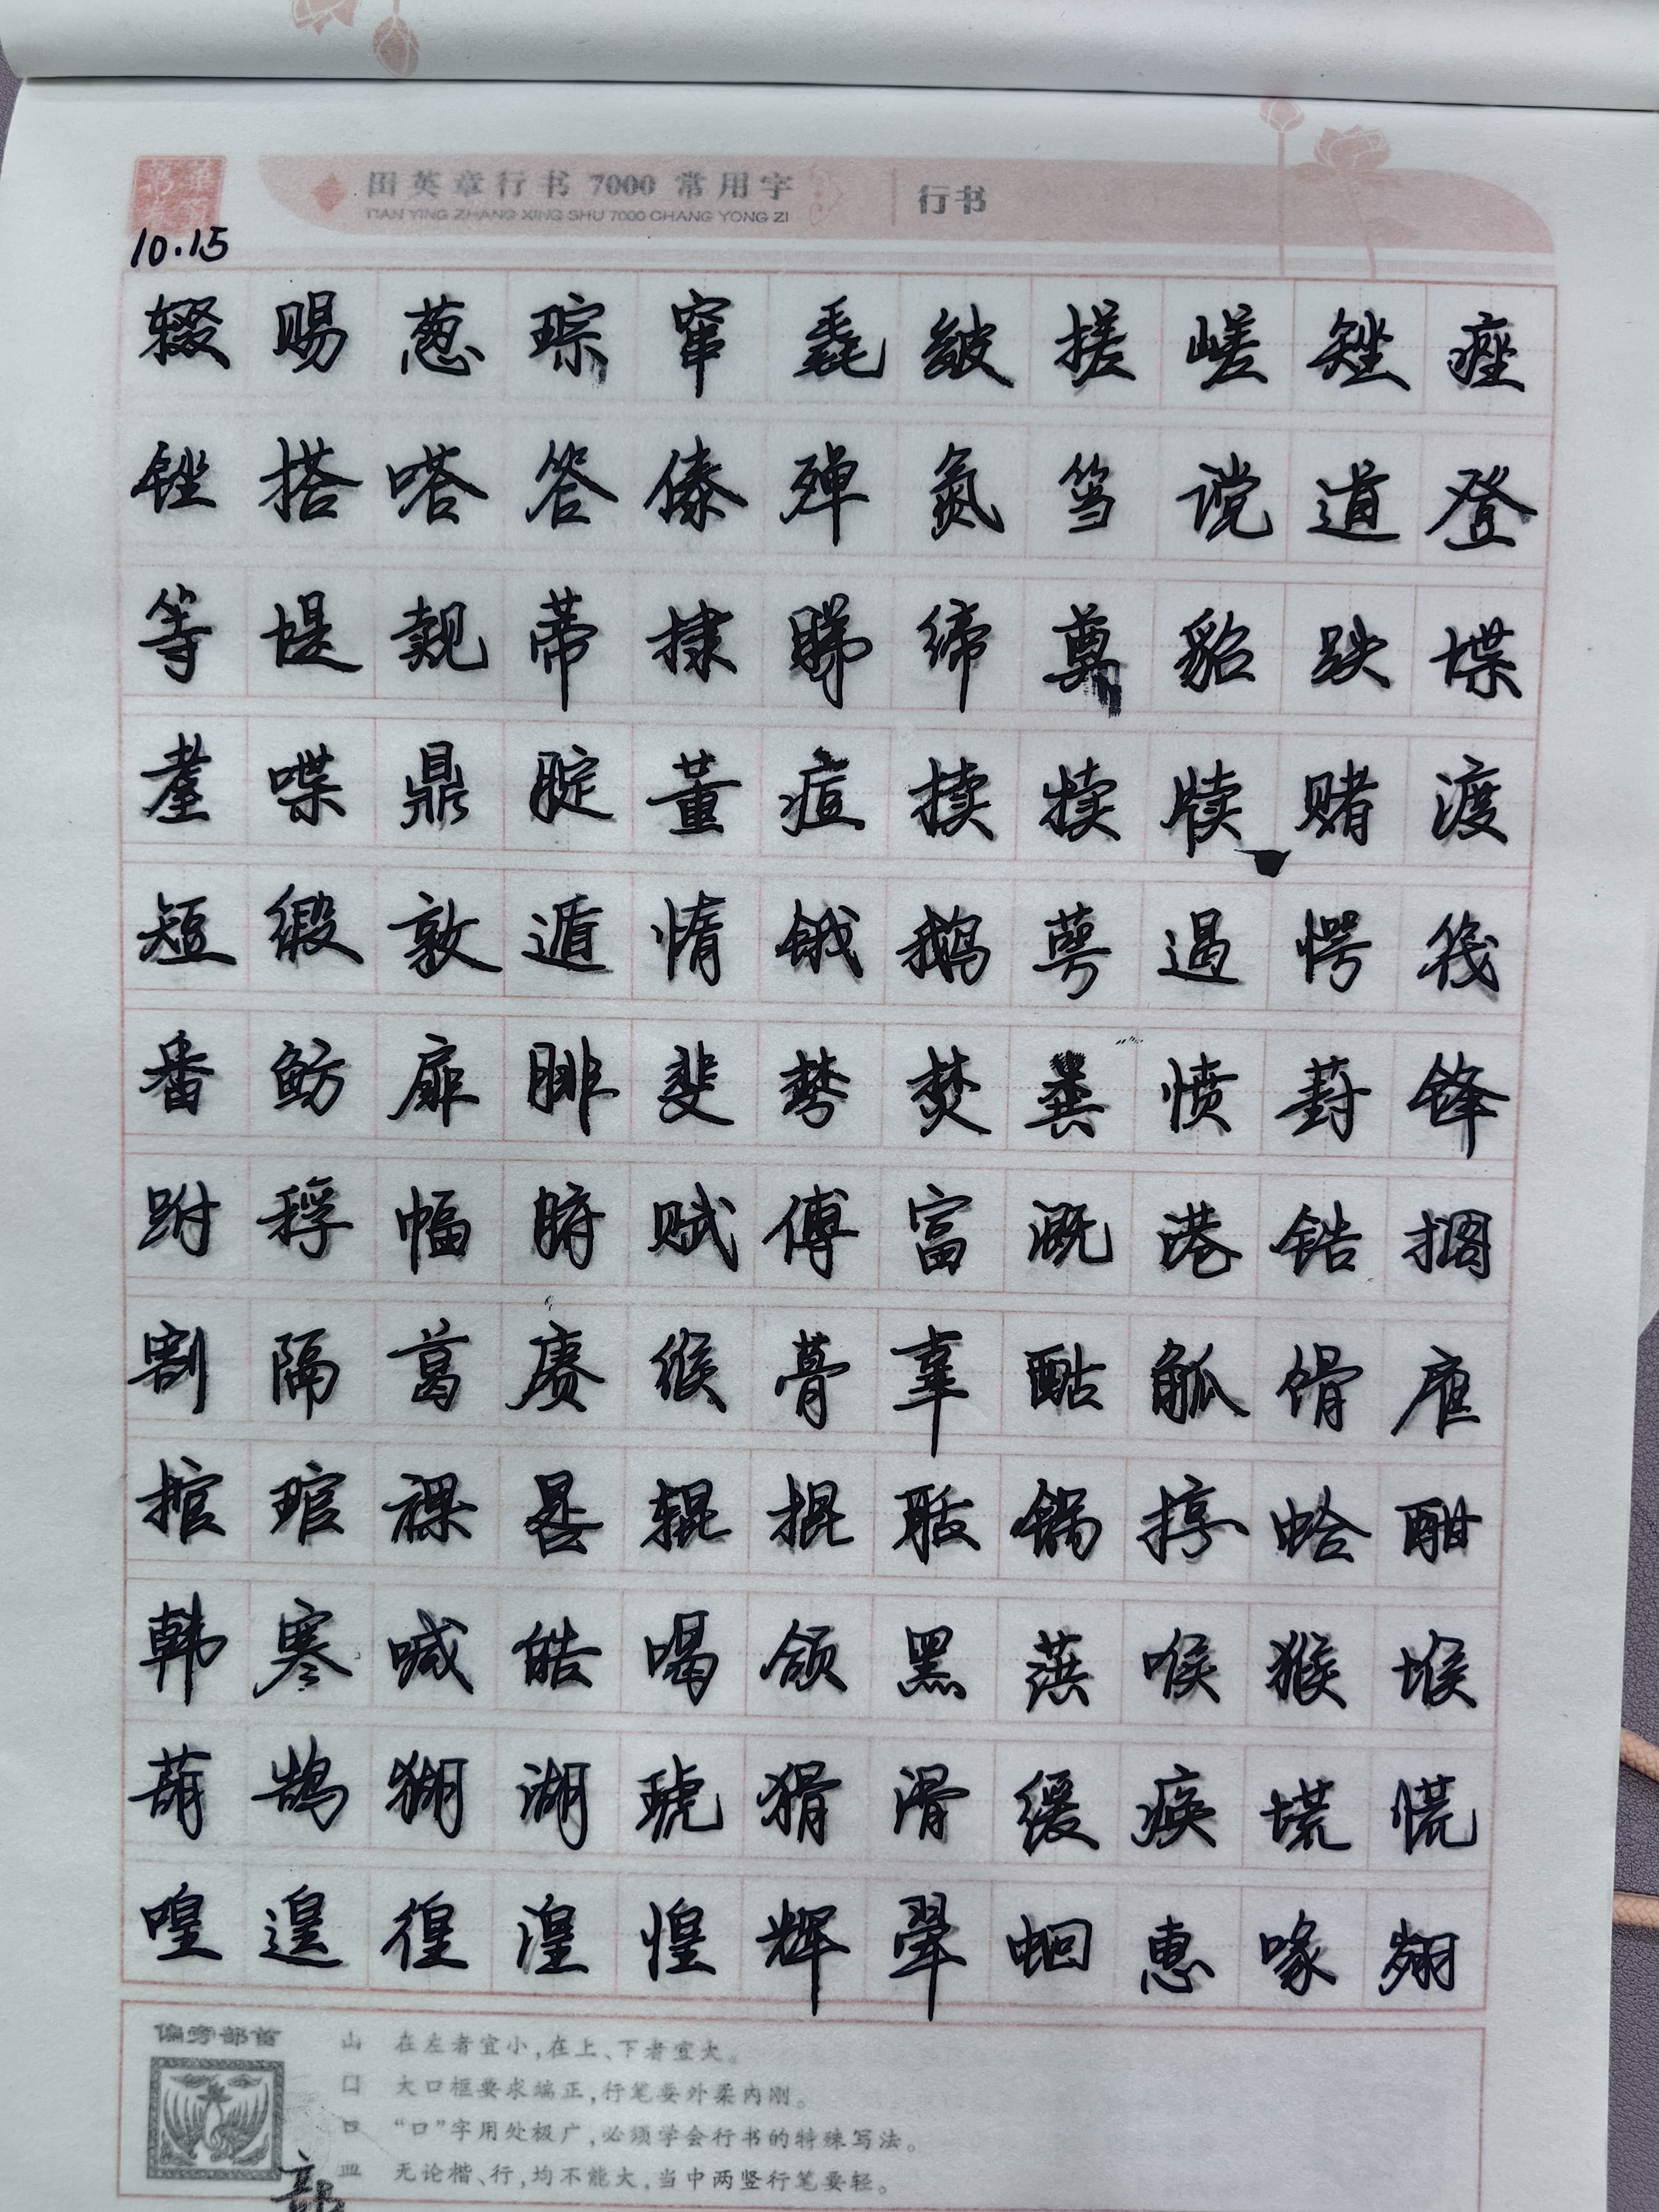 田英章行书 7000 常用字
TIAN YING ZHANG XING SHU 7000 CHANG YONG ZI
行书
10.15
辍赐葱琮窜毳皴搓嵯矬痤
锉搭嗒答傣殚氮筜谠道登
等堤觌蒂捸睇缔奠貂跌堞
耋喋鼎腚董痘揍犊牍赌渡
短缎敦遁惰饿鹅萼遏愕筏
番鲂扉腓斐棼焚粪愤葑锋
跗稃幅腑赋傅富溉港锆搁
割隔葛赓缑蓇辜酤觚馉雇
掼琯祼晷辊掍聒锅掼蛤酣
韩寒喊皓喝颌黑蕻喉猴堠
葫鹄猢湖琥猾滑缓痪塃慌
喤遑徨湟惶辉翚蛔惠喙翙
偏旁部首
山 在左者宜小,在上、下者宜大。
囗 大口框要求端正,行笔要外柔内刚。
口 “口”字用处极广,必须学会行书的特殊写法。
皿 无论楷、行,均不能大,当中两竖行笔要轻。